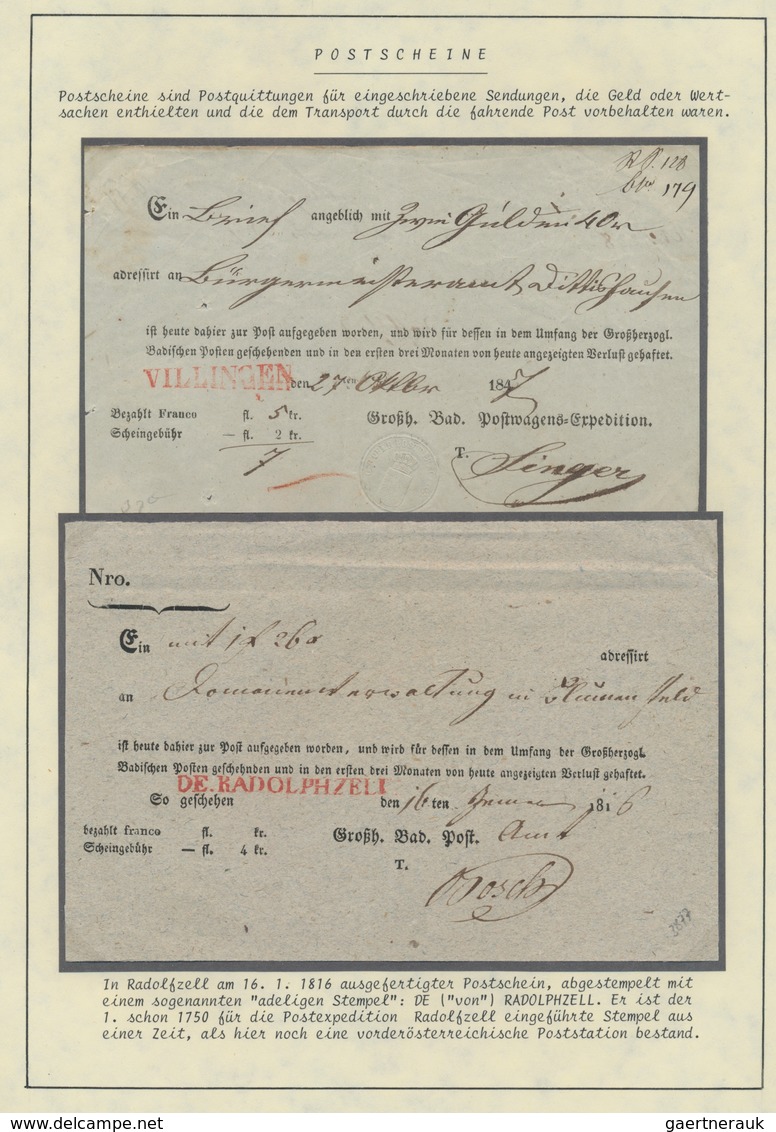 POSTSCHEINE
Postscheine sind Postquittungen für eingeschriebene Sendungen, die Geld oder Wert-
sachen enthielten und die dem Transport durch die fahrende Post vorbehalten waren.
128
179
Ein Brief angeblich mit Zwei Gulden 40 x
adressirt an Bürgermeisteramt Dittishausen
ist heute dahier zur Post aufgegeben worden, und wird für dessen in dem Umfang der Großherzogl.
Badischen Posten geschehenden und in den ersten drei Monaten von heute angezeigten Verlust gehaftet.
VILLINGEN den 27ten Oktbr 1847
Bezahlt Franco fl. 5 kr. Großh. Bad. Postwagens-Expedition.
Scheingebühr — fl. 2 kr.
7
T. Singer
Nro.
Ein mit 1 f 26 x
adressirt
an Domainenverwaltung in Blumenfeld
ist heute dahier zur Post aufgegeben worden, und wird für dessen in dem Umfang der Großherzogl.
Badischen Posten geschehnden und in den ersten drei Monaten von heute angezeigten Verlust gehaftet.
DE. RADOLPHZELL
So geschehen den 16ten 1816
bezahlt franco fl. kr. Großh. Bad. Post. Amt
Scheingebühr — fl. 4 kr.
T.
Bosch
3877
In Radolfzell am 16. 1. 1816 ausgefertigter Postschein, abgestempelt mit
einem sogenannten "adeligen Stempel": DE ("von") RADOLPHZELL. Er ist der
1. schon 1750 für die Postexpedition Radolfzell eingeführte Stempel aus
einer Zeit, als hier noch eine vorderösterreichische Poststation bestand.
www.delcampe.net
gaertnerauk